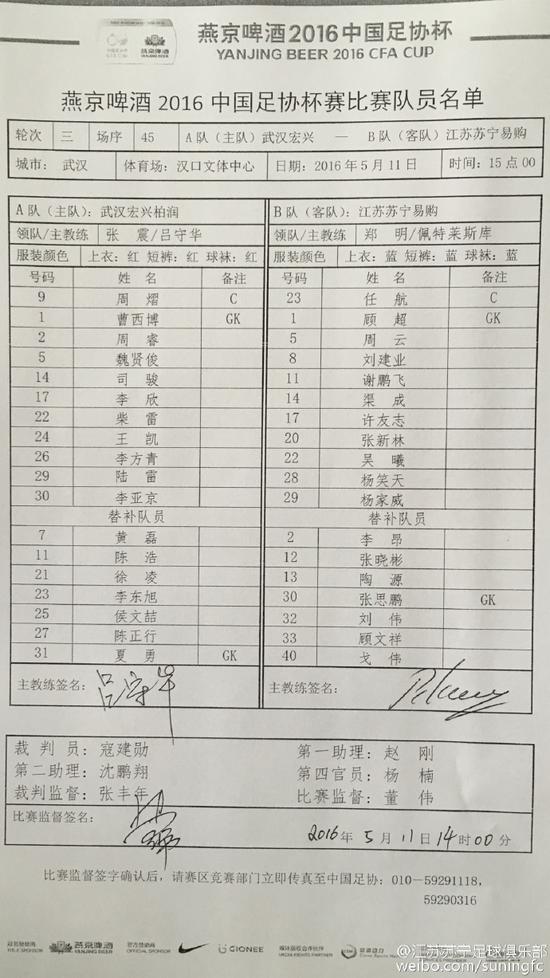 燕京啤酒2016中国足协杯
YANJING BEER 2016 CFA CUP
燕京啤酒 2016 中国足协杯赛比赛队员名单
轮次 三 场序 45 A队（主队）武汉宏兴 — B队（客队）江苏苏宁易购
城市： 武汉 体育场：汉口文体中心 日期：2016年5月11日 时间：15点00
A队（主队）：武汉宏兴柏润 B队（客队）：江苏苏宁易购
领队/主教练 张 震/吕守华 领队/主教练 郑 明/佩特莱斯库
服装颜色 上衣：红 短裤：红 球袜：红 服装颜色 上衣：蓝 短裤：蓝 球袜：蓝
号码 姓 名 备注 号码 姓 名 备注
9 周 熠 C 23 任 航 C
1 曹西博 GK 1 顾 超 GK
2 周 睿 5 周 云
5 魏贤俊 8 刘建业
14 司 骏 11 谢鹏飞
17 李 欣 14 渠 成
22 柴 雷 17 许友志
24 王 凯 20 张新林
26 李方青 22 吴 曦
29 陆 雷 28 杨笑天
30 李亚京 29 杨家威
替补队员 替补队员
7 黄 磊 2 李 昂
11 陈 浩 12 张晓彬
21 徐 凌 13 陶 源
23 李东旭 30 张思鹏 GK
25 侯文喆 32 刘 伟
27 陈正行 33 顾文祥
31 夏 勇 GK 40 戈 伟
主教练签名：吕守华 主教练签名：
裁 判 员：寇建勋 第一助理：赵 刚
第二助理：沈鹏翔 第四官员：杨 楠
裁判监督：张丰年 比赛监督：董 伟
比赛监督签名：
2016年 5月11日14时00分
比赛监督签字确认后，请赛区竞赛部门立即传真至中国足协：010-59291118，
59290316
燕京啤酒 GIONEE
@江苏苏宁足球俱乐部
weibo.com/suningfc